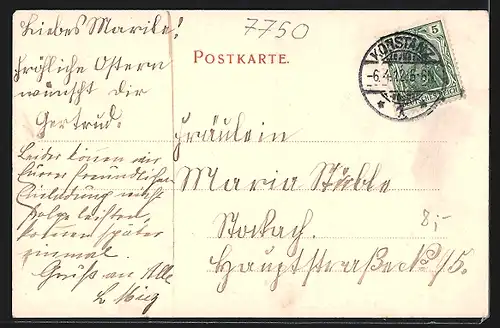 Liebes Marile!
Fröhliche Ostern
wünscht dir
Gertrud.
Leider können wir
Eurer freundlichen
Einladung nicht
Folge leisten,
kommen später
einmal.
Gruß an Alle
7750
POSTKARTE.
KONSTANZ
5
DEUTSCHES REICH
Fräulein
Maria Stüble
Stockach.
Hauptstraße No 15.
2,-